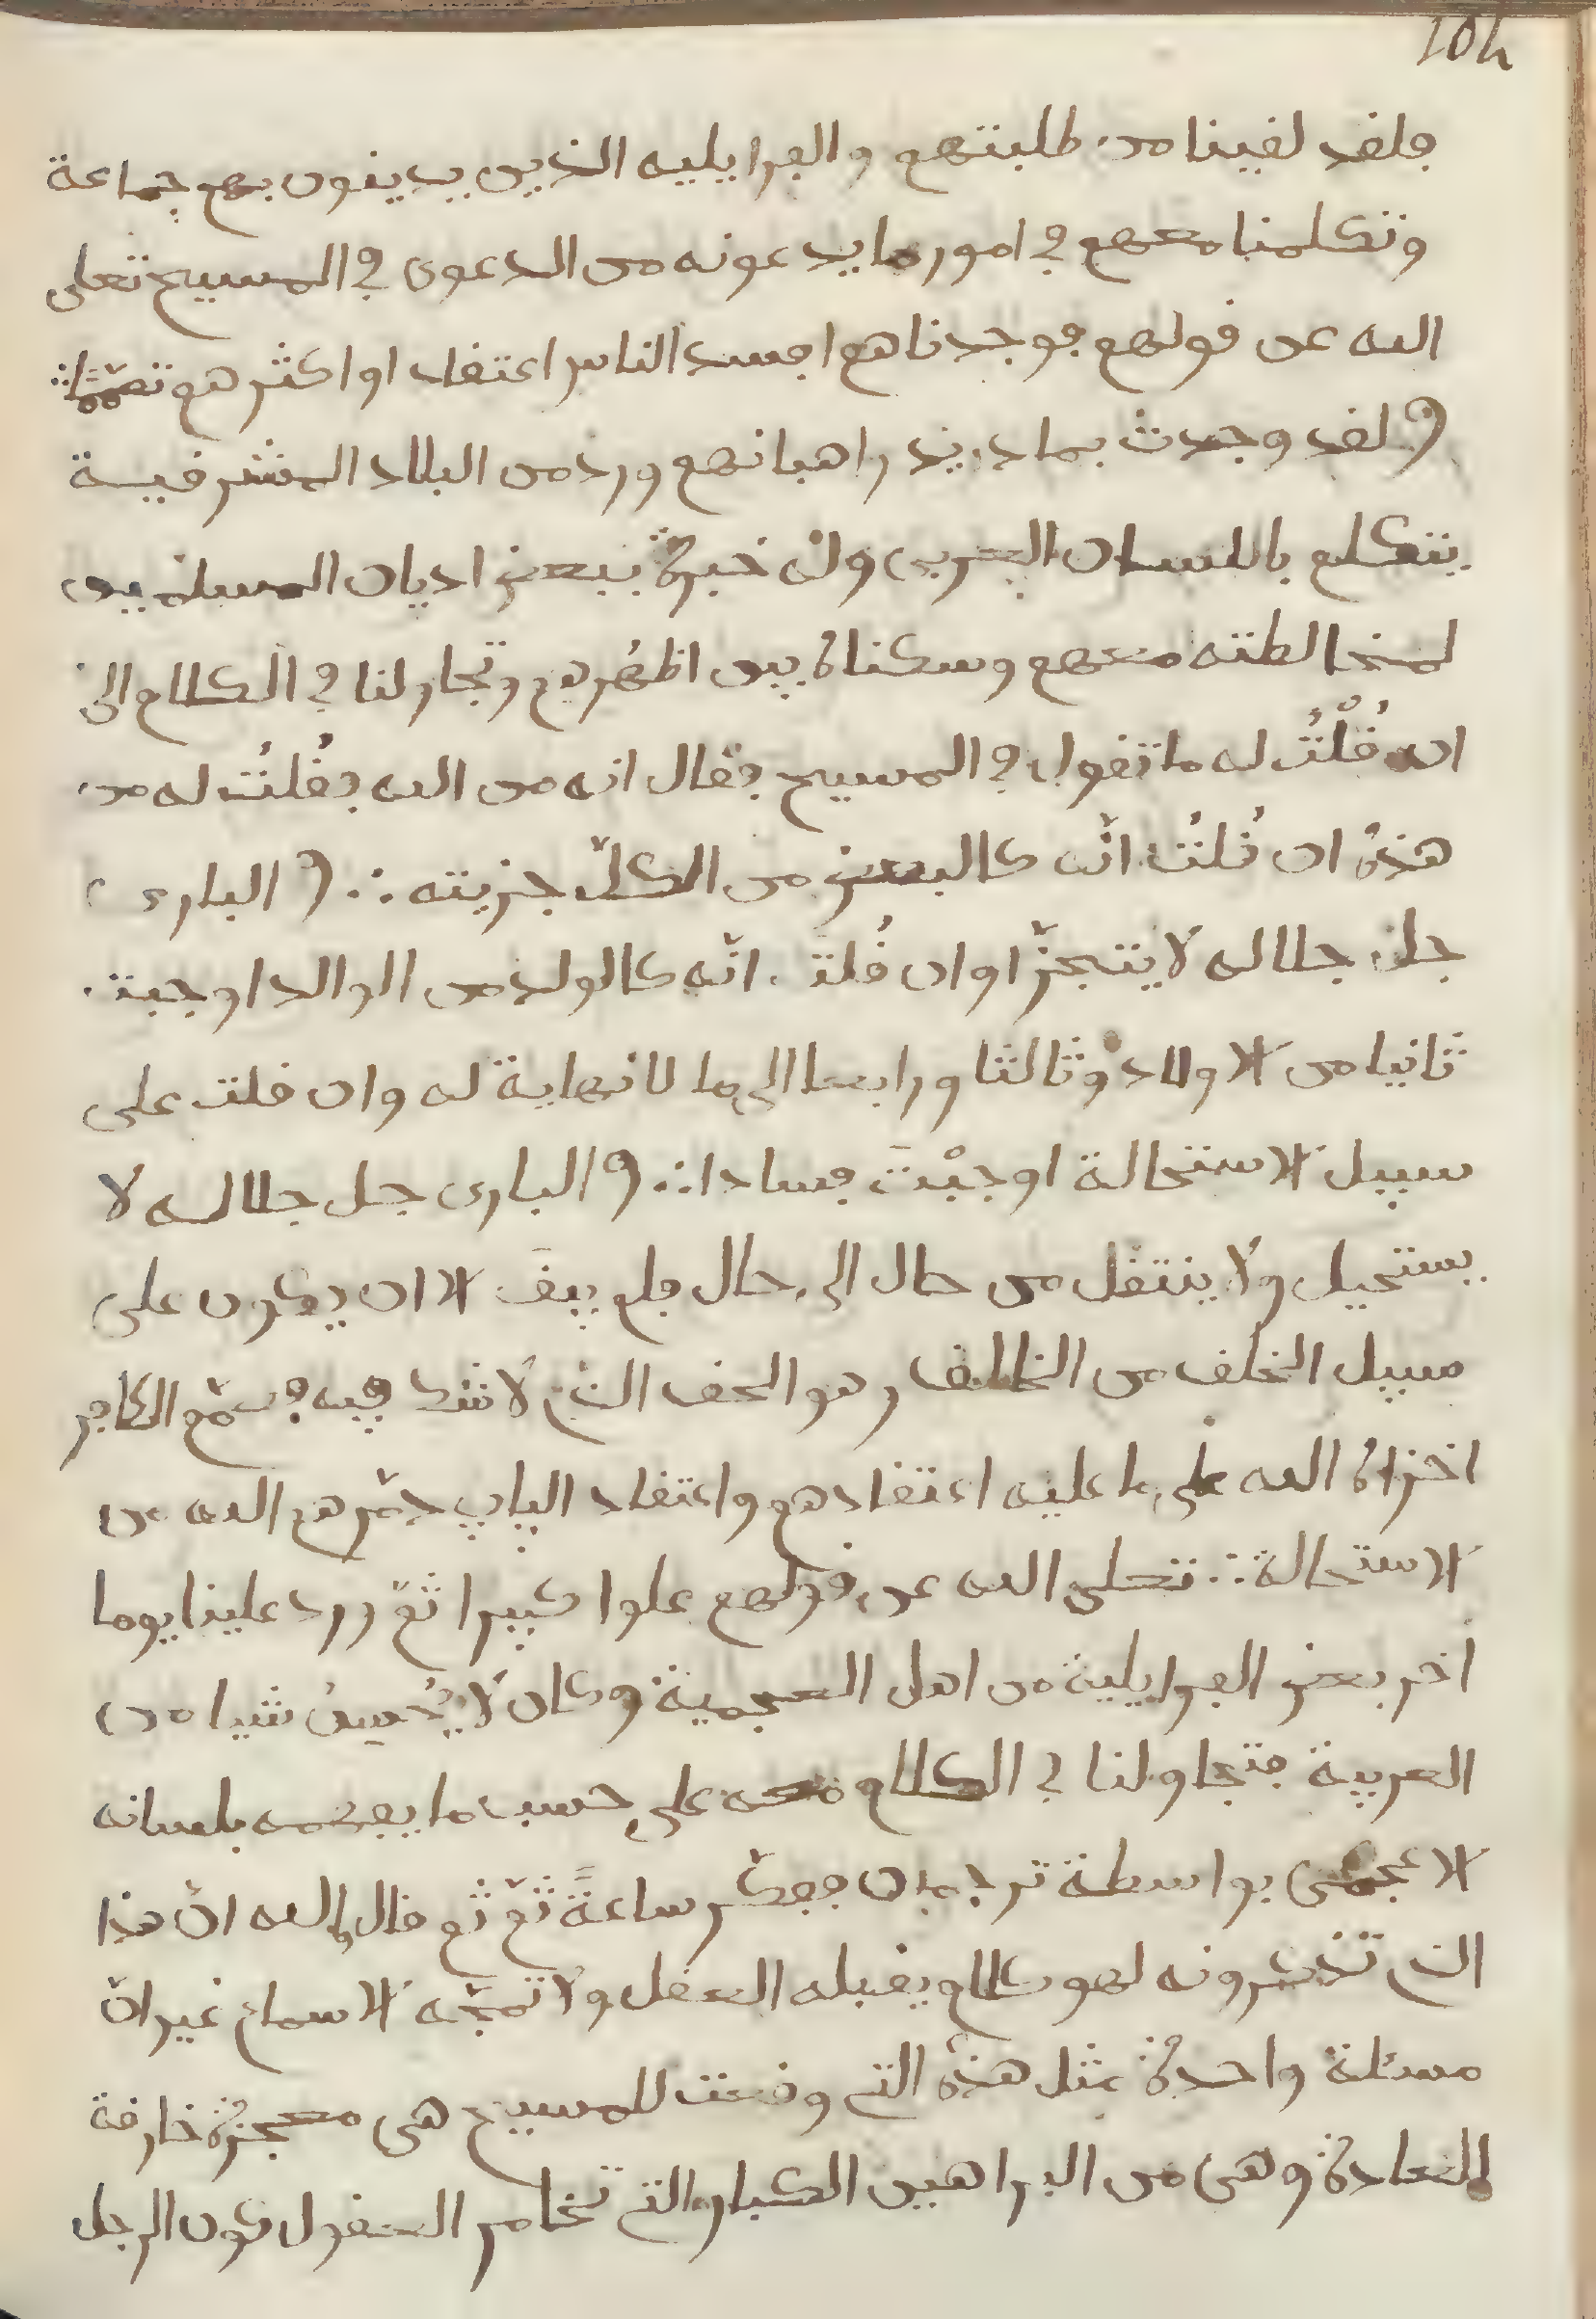 104
فلقد لقينا من طلبتهم والفرايليه الذين يدينون بهم جماعة
وتكلمنا معهم في امور ما يدعونه من الدعوى في المسيح تعلى
الله عن قولهم فوجدناهم افسد الناس اعتقادا واكثرهم
لقد وجدت بمادريد راهبا منهم ورد من البلاد المشرقية
يتكلم باللسان العربي وله خبرة ببعض اديان المسلمين
لمخالطته معهم وسكناه بين اظهرهم وتجاولنا في الكلام الى
ان قُلْتُ له ما تقول في المسيح فقال انه من الله فقُلتُ له من
هذه ان قُلتُ انّه كالبعض من الكلّ جزيته ∴ والبارى
جل جلاله لا يتجزّا وان قُلتَ انّه كالولد من الوالد اوجبت
ثانيا من الاولاد وثالثا ورابعا الى ما لا نهاية له وان قلت على
سبيل الاستحالة اوجبْتَ فسادا ∴ والبارى جل جلاله لا
يستحيل ولا ينتقل من حال الى حال فلم يبقَ الا ان يكون على
سبيل الخلق من الخالق وهو الحق الذي لا شك فيه الكافر
اخزاه الله على ما عليه اعتقادهم واعتقاد الپاپ دمّرهم الله من
الاستحالة ∴ تعلى الله عن قولهم علوا كبيرا ثمّ ورد علينا يوما
اخر بعض الفرايلية من اهل العجمية وكان لا يُحسِنُ شيا من
العربية فتجاولنا في الكلام معه على حسب ما يفهمه بلسانه
الاعجمي بواسطة ترجمان ففكّر ساعةً ثمّ ثم قال والله انّ هذا
الذي تذكرونه لهو كلام يقبله العقل ولا تمجّه الاسماع غير انّ
مسئلة واحدة مثل هذه التي وقعت للمسيح هي معجزة خارقة
للعادة وهي من البراهين الكبار التي تخامر العقول كون الرجل